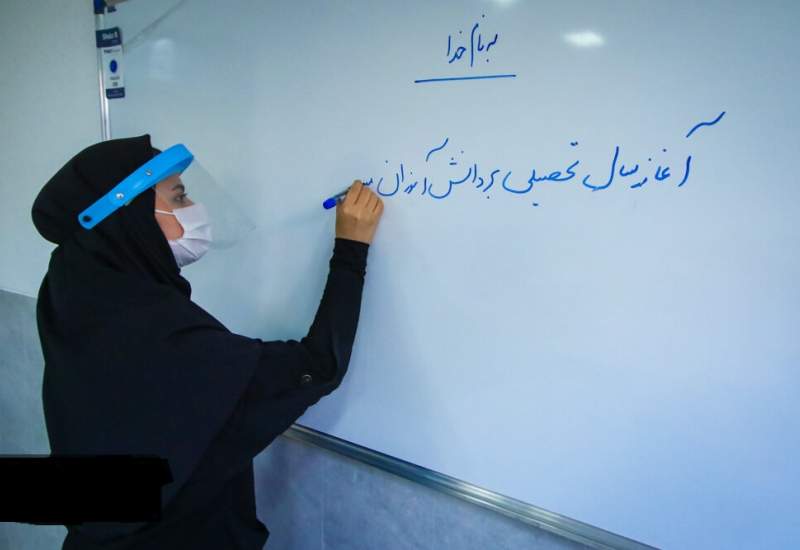 به نام خدا
آغاز سال تحصیلی بر دانش آموزان